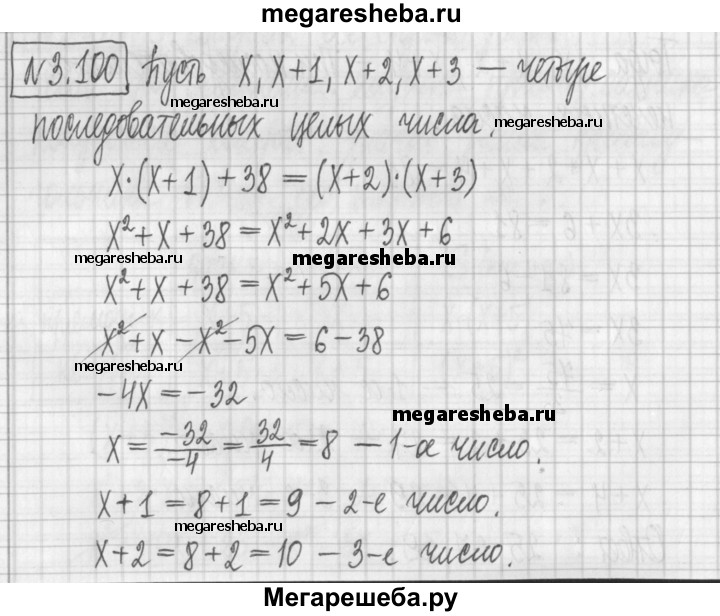 megaresheba.ru
№3.100. Пусть x, x+1, x+2, x+3 — четыре
megaresheba.ru
последовательных целых числа.
megaresheba.ru
x·(x+1)+38=(x+2)·(x+3)
x²+x+38=x²+2x+3x+6
megaresheba.ru
megaresheba.ru
x²+x+38=x²+5x+6
x²+x-x²-5x=6-38
megaresheba.ru
-4x=-32
megaresheba.ru
x=-32/-4=32/4=8 — 1-ое число.
x+1=8+1=9 — 2-е число.
megaresheba.ru
x+2=8+2=10 — 3-е число.
Мегарешеба.ру